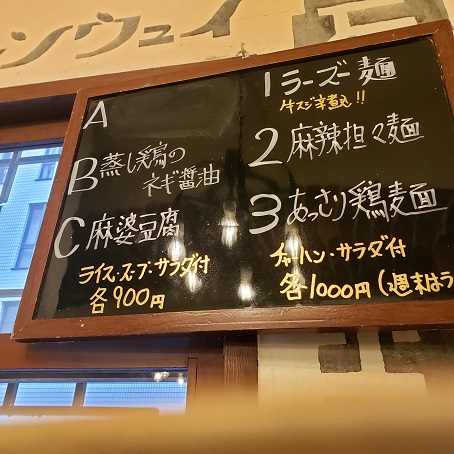 ンウェイ
A
B 蒸し鶏の
ネギ醤油
C 麻婆豆腐
ライス・スープ・サラダ付
各900円
1 ラーズー麺
牛スジ辛煮込!!
2 麻辣担々麺
3 あっさり鶏麦面
チャーハン・サラダ付
各1000円(週末はラ